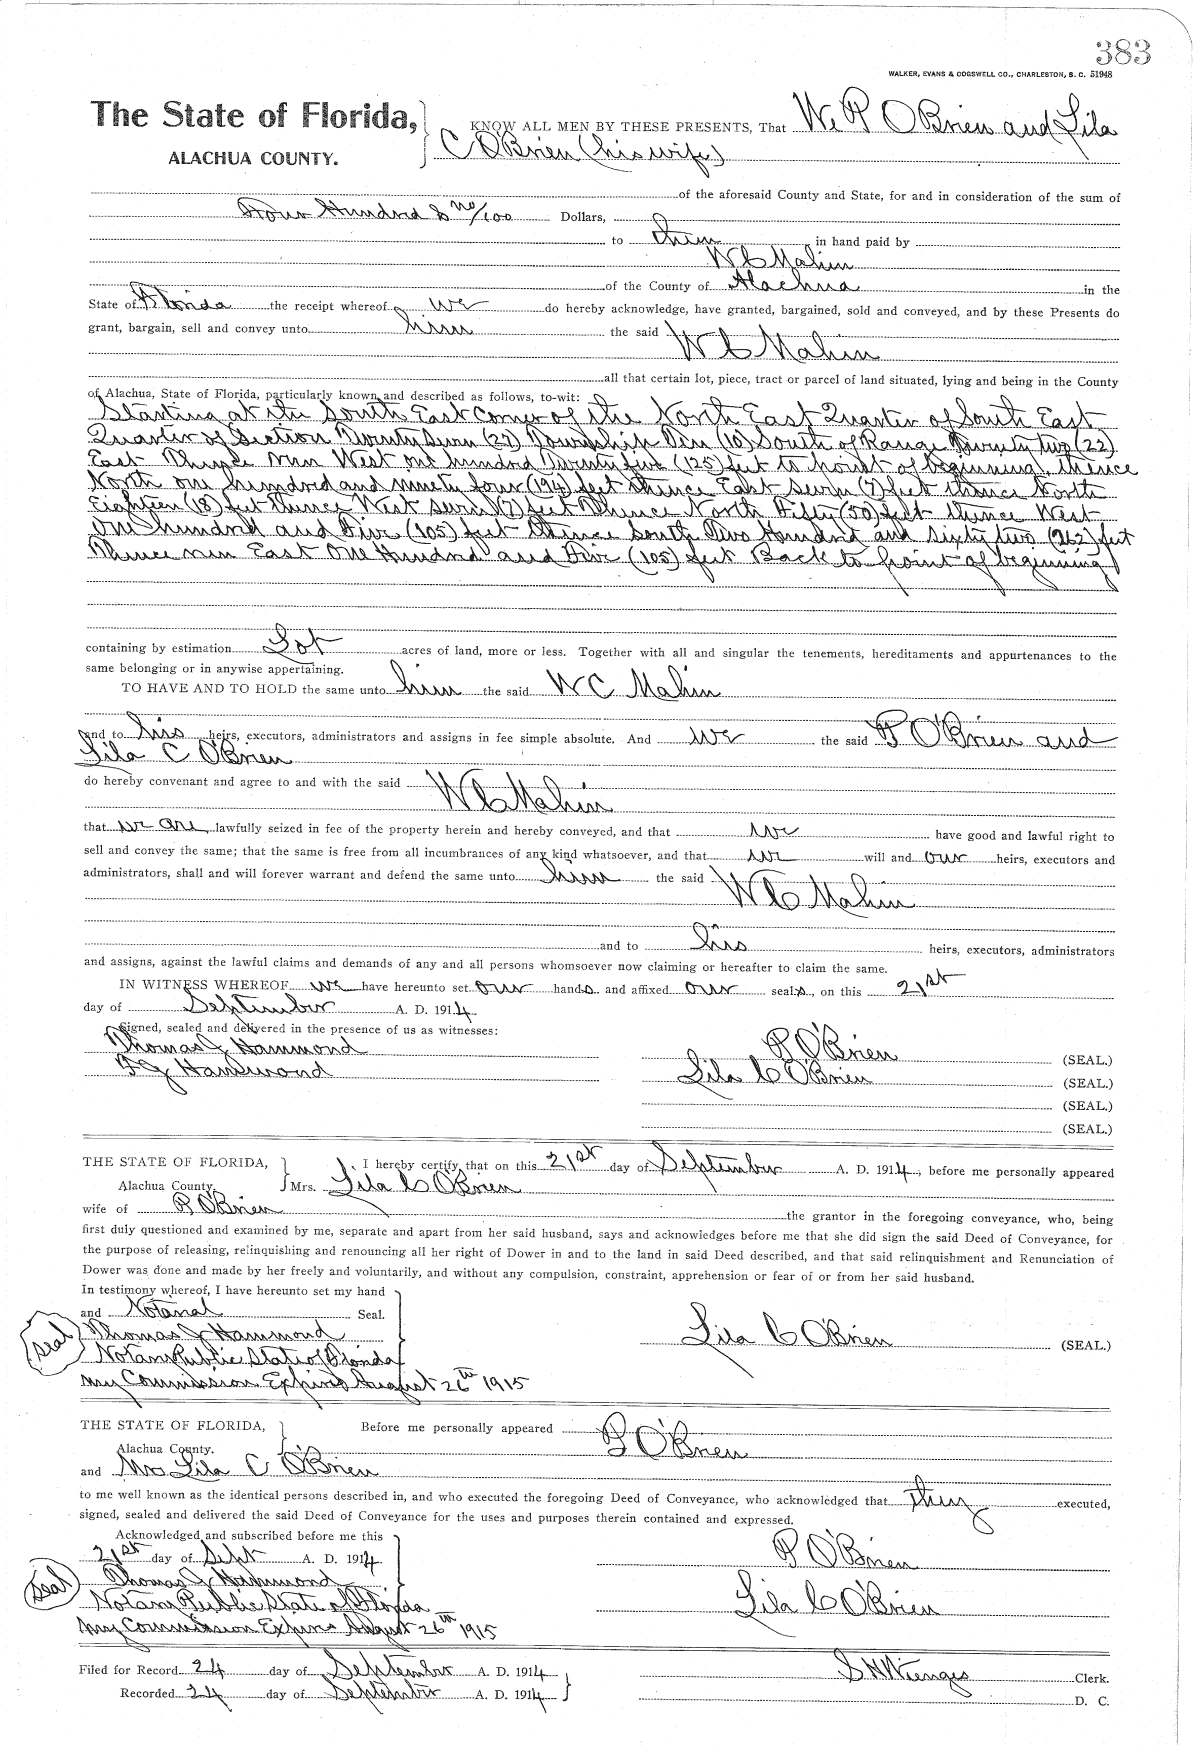 383
WALKER, EVANS & COGSWELL CO., CHARLESTON, S. C. 51948
The State of Florida,
KNOW ALL MEN BY THESE PRESENTS, That We P O'Brien and Lila
ALACHUA COUNTY.
C O'Brien (his wife)
of the aforesaid County and State, for and in consideration of the sum of
Four Hundred & no/100 Dollars,
to them in hand paid by
W C Mahin
of the County of Alachua in the
State of Florida the receipt whereof we do hereby acknowledge, have granted, bargained, sold and conveyed, and by these Presents do
grant, bargain, sell and convey unto him the said
W C Mahin
all that certain lot, piece, tract or parcel of land situated, lying and being in the County
of Alachua, State of Florida, particularly known and described as follows, to-wit:
Starting at the South East Corner of the North East Quarter of South East
Quarter of Section Twenty Seven (27) Township Ten (10) South of Range Twenty two (22)
East Thence run West one hundred Twenty five (125) feet to point of beginning, thence
North one hundred and ninety four (194) feet thence East seven (7) feet thence North
Eighteen (18) feet thence West seven (7) feet Thence North Fifty (50) feet thence West
one hundred and Five (105) feet thence South Two Hundred and sixty two (262) feet
Thence run East One Hundred and Five (105) feet Back to point of beginning
containing by estimation Lot acres of land, more or less. Together with all and singular the tenements, hereditaments and appurtenances to the
same belonging or in anywise appertaining.
TO HAVE AND TO HOLD the same unto him the said W C Mahin
and to his heirs, executors, administrators and assigns in fee simple absolute. And we the said P O'Brien and
Lila C O'Brien
do hereby convenant and agree to and with the said
W C Mahin
that we are lawfully seized in fee of the property herein and hereby conveyed, and that we have good and lawful right to
sell and convey the same; that the same is free from all incumbrances of any kind whatsoever, and that we will and our heirs, executors and
administrators, shall and will forever warrant and defend the same unto him the said
W C Mahin
and to his heirs, executors, administrators
and assigns, against the lawful claims and demands of any and all persons whomsoever now claiming or hereafter to claim the same.
IN WITNESS WHEREOF we have hereunto set our hands and affixed our seals, on this 21st
day of September A. D. 1914
Signed, sealed and delivered in the presence of us as witnesses:
Thomas J Hammond
P O'Brien (SEAL.)
F J Hammond
Lila C O'Brien (SEAL.)
(SEAL.)
(SEAL.)
THE STATE OF FLORIDA,
I hereby certify that on this 21st day of September A. D. 1914, before me personally appeared
Alachua County.
Mrs. Lila C O'Brien
wife of P O'Brien the grantor in the foregoing conveyance, who, being
first duly questioned and examined by me, separate and apart from her said husband, says and acknowledges before me that she did sign the said Deed of Conveyance, for
the purpose of releasing, relinquishing and renouncing all her right of Dower in and to the land in said Deed described, and that said relinquishment and Renunciation of
Dower was done and made by her freely and voluntarily, and without any compulsion, constraint, apprehension or fear of or from her said husband.
In testimony whereof, I have hereunto set my hand
and Notarial Seal.
seal
Thomas J Hammond
Lila C O'Brien (SEAL.)
Notary Public State of Florida
my Commission Expires August 26th 1915
THE STATE OF FLORIDA,
Before me personally appeared P O'Brien
Alachua County.
and Mrs Lila C O'Brien
to me well known as the identical persons described in, and who executed the foregoing Deed of Conveyance, who acknowledged that they executed,
signed, sealed and delivered the said Deed of Conveyance for the uses and purposes therein contained and expressed.
Acknowledged and subscribed before me this
21st day of Sept A. D. 1914
P O'Brien
seal
Thomas J Hammond
Notary Public State of Florida
Lila C O'Brien
my Commission Expires August 26th 1915
Filed for Record 24 day of September A. D. 1914
S H Wienges Clerk.
Recorded 24 day of September A. D. 1914
D. C.